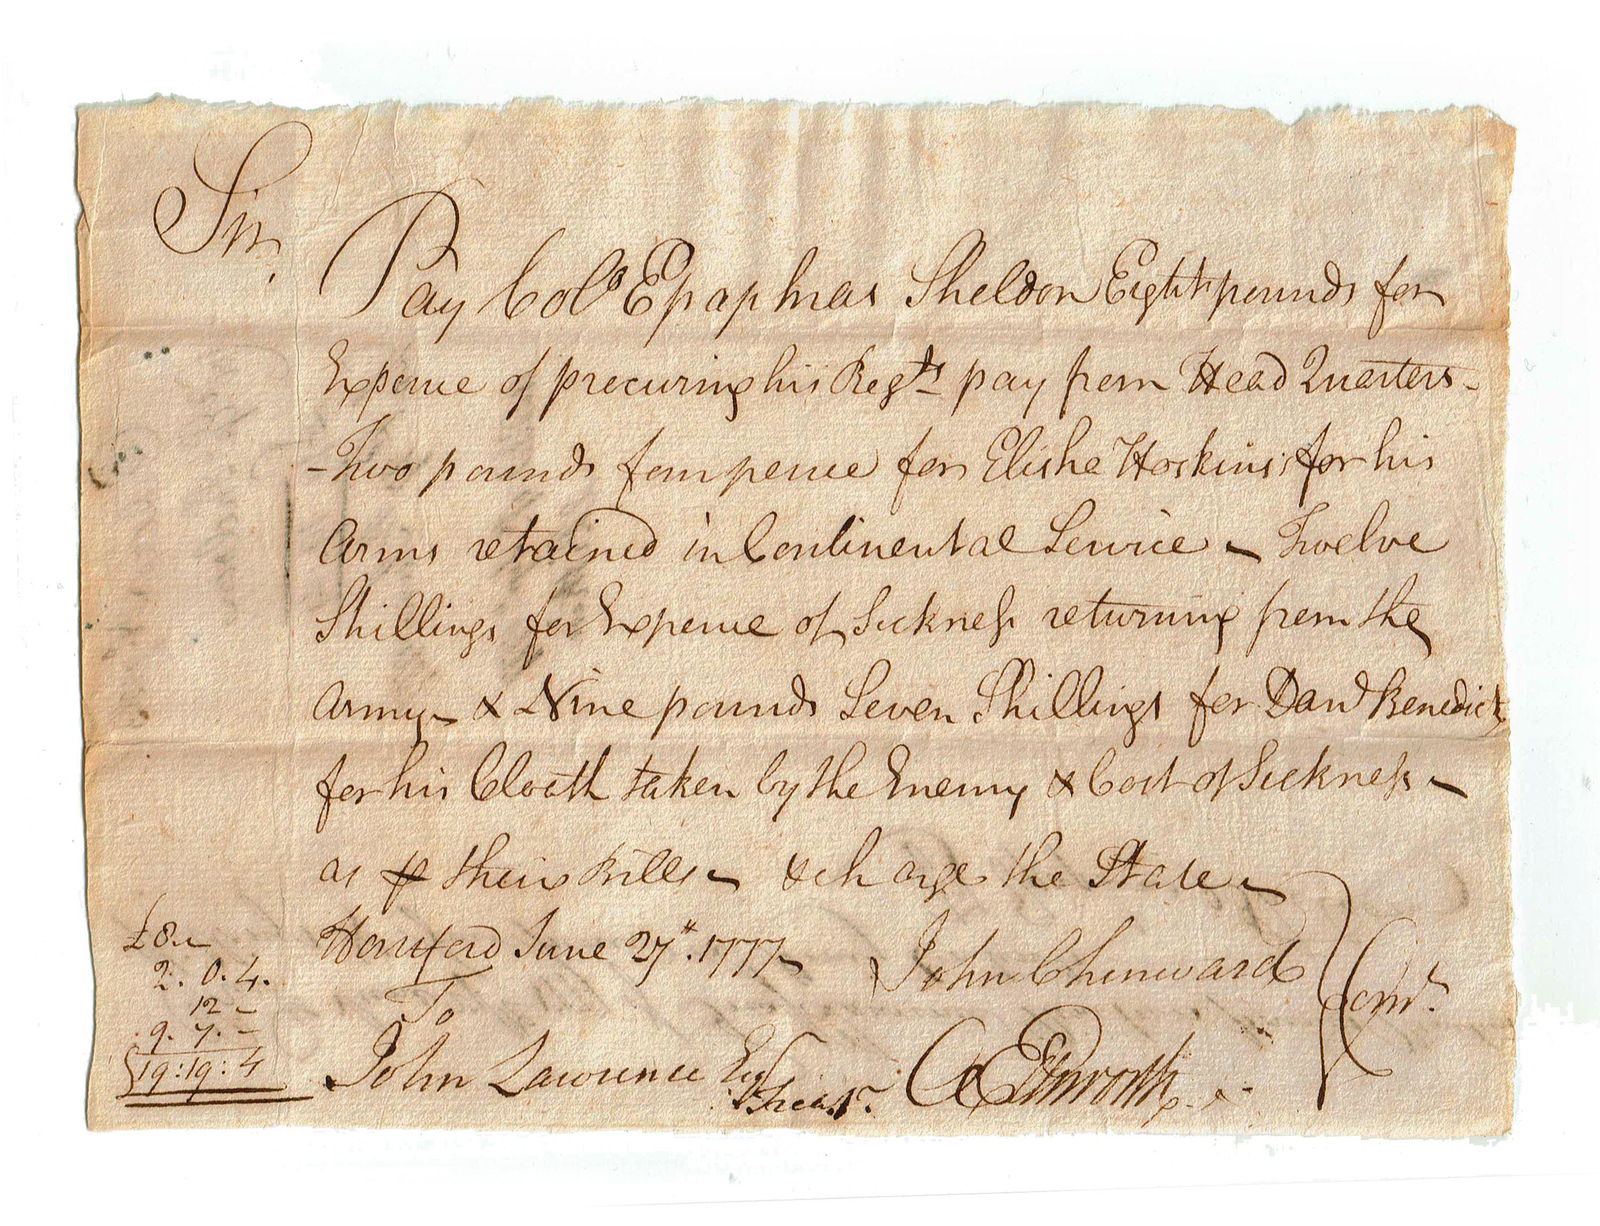 Sir.
Pay Colo Epaphras Sheldon Eight pounds for
Expence of precuring his Regts pay from Head Quarters -
- Two pounds four pence for Elisha Hoskins for his
Arms retained in Continental Service - Twelve
Shillings for Expence of Sickness returning from the
Army - & Nine pounds Seven Shillings for Danl Benedict
for his Cloath taken by the Enemy & Cost of Sickness -
as their Bills - & charge the State -
£8 -
2. 0. 4.
12 -
9. 7. -
19: 19: 4
Hartford June 27th. 1777 -
To
John Lawrence Esqr
Treasr.
John Chenward
O Ellsworth
Comt.